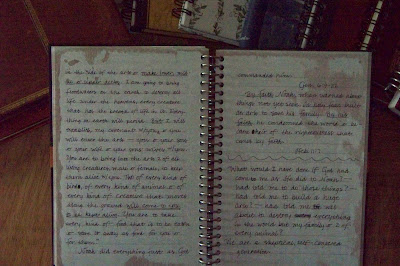 in the side of the ark & make lower, mid-
dle & upper decks. I am going to bring
floodwaters on the earth to destroy all
life under the heavens, every creature
that has the breath of life in it. Every-
thing on earth will perish. But I will
establish my covenant with you, & you
will enter the ark — you & your sons
& your wife & your sons' wives with you.
You are to bring into the ark 2 of all
living creatures, male & female, to keep
them alive with you. Two of every kind of
bird, of every kind of animal & of
every kind of creature that moves
along the ground will come to you
to be kept alive. You are to take
every kind of food that is to be eaten
& store it away as food for you &
for them.
Noah did everything just as God
commanded him.
Gen. 6:9-22
By faith Noah, when warned about
things not yet seen, in holy fear built
an ark to save his family. By his
faith he condemned the world &
heir of the righteousness that
by faith.
Heb. 11:7
What would I have done if God had
come to me as He did to Noah? —
had told me to do those things? —
had told me to build a huge
ark? — had told me He was
about to destroy everything
in the world but my family & 2 of
every animal?
We are a skeptical, self-
generation.